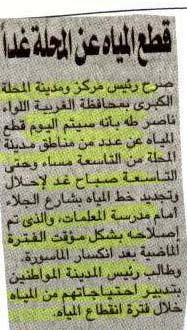 قطع المياه عن المحلة غداً
صرح رئيس مركز ومدينة المحلة
الكبرى بمحافظة الغربية اللواء
ناصر طه بأنه سيتم اليوم قطع
المياه عن عدد من مناطق مدينة
المحلة من التاسعة مساء وحتى
التاسعة صباح غد لإحلال
وتجديد خط المياه بشارع الجلاء
أمام مدرسة المعلمات، والذى تم
إصلاحه بشكل مؤقت الفترة
الماضية بعد انكسار الماسورة.
وطالب رئيس المدينة المواطنين
بتدبير احتياجاتهم من المياه
خلال فترة انقطاع المياه.